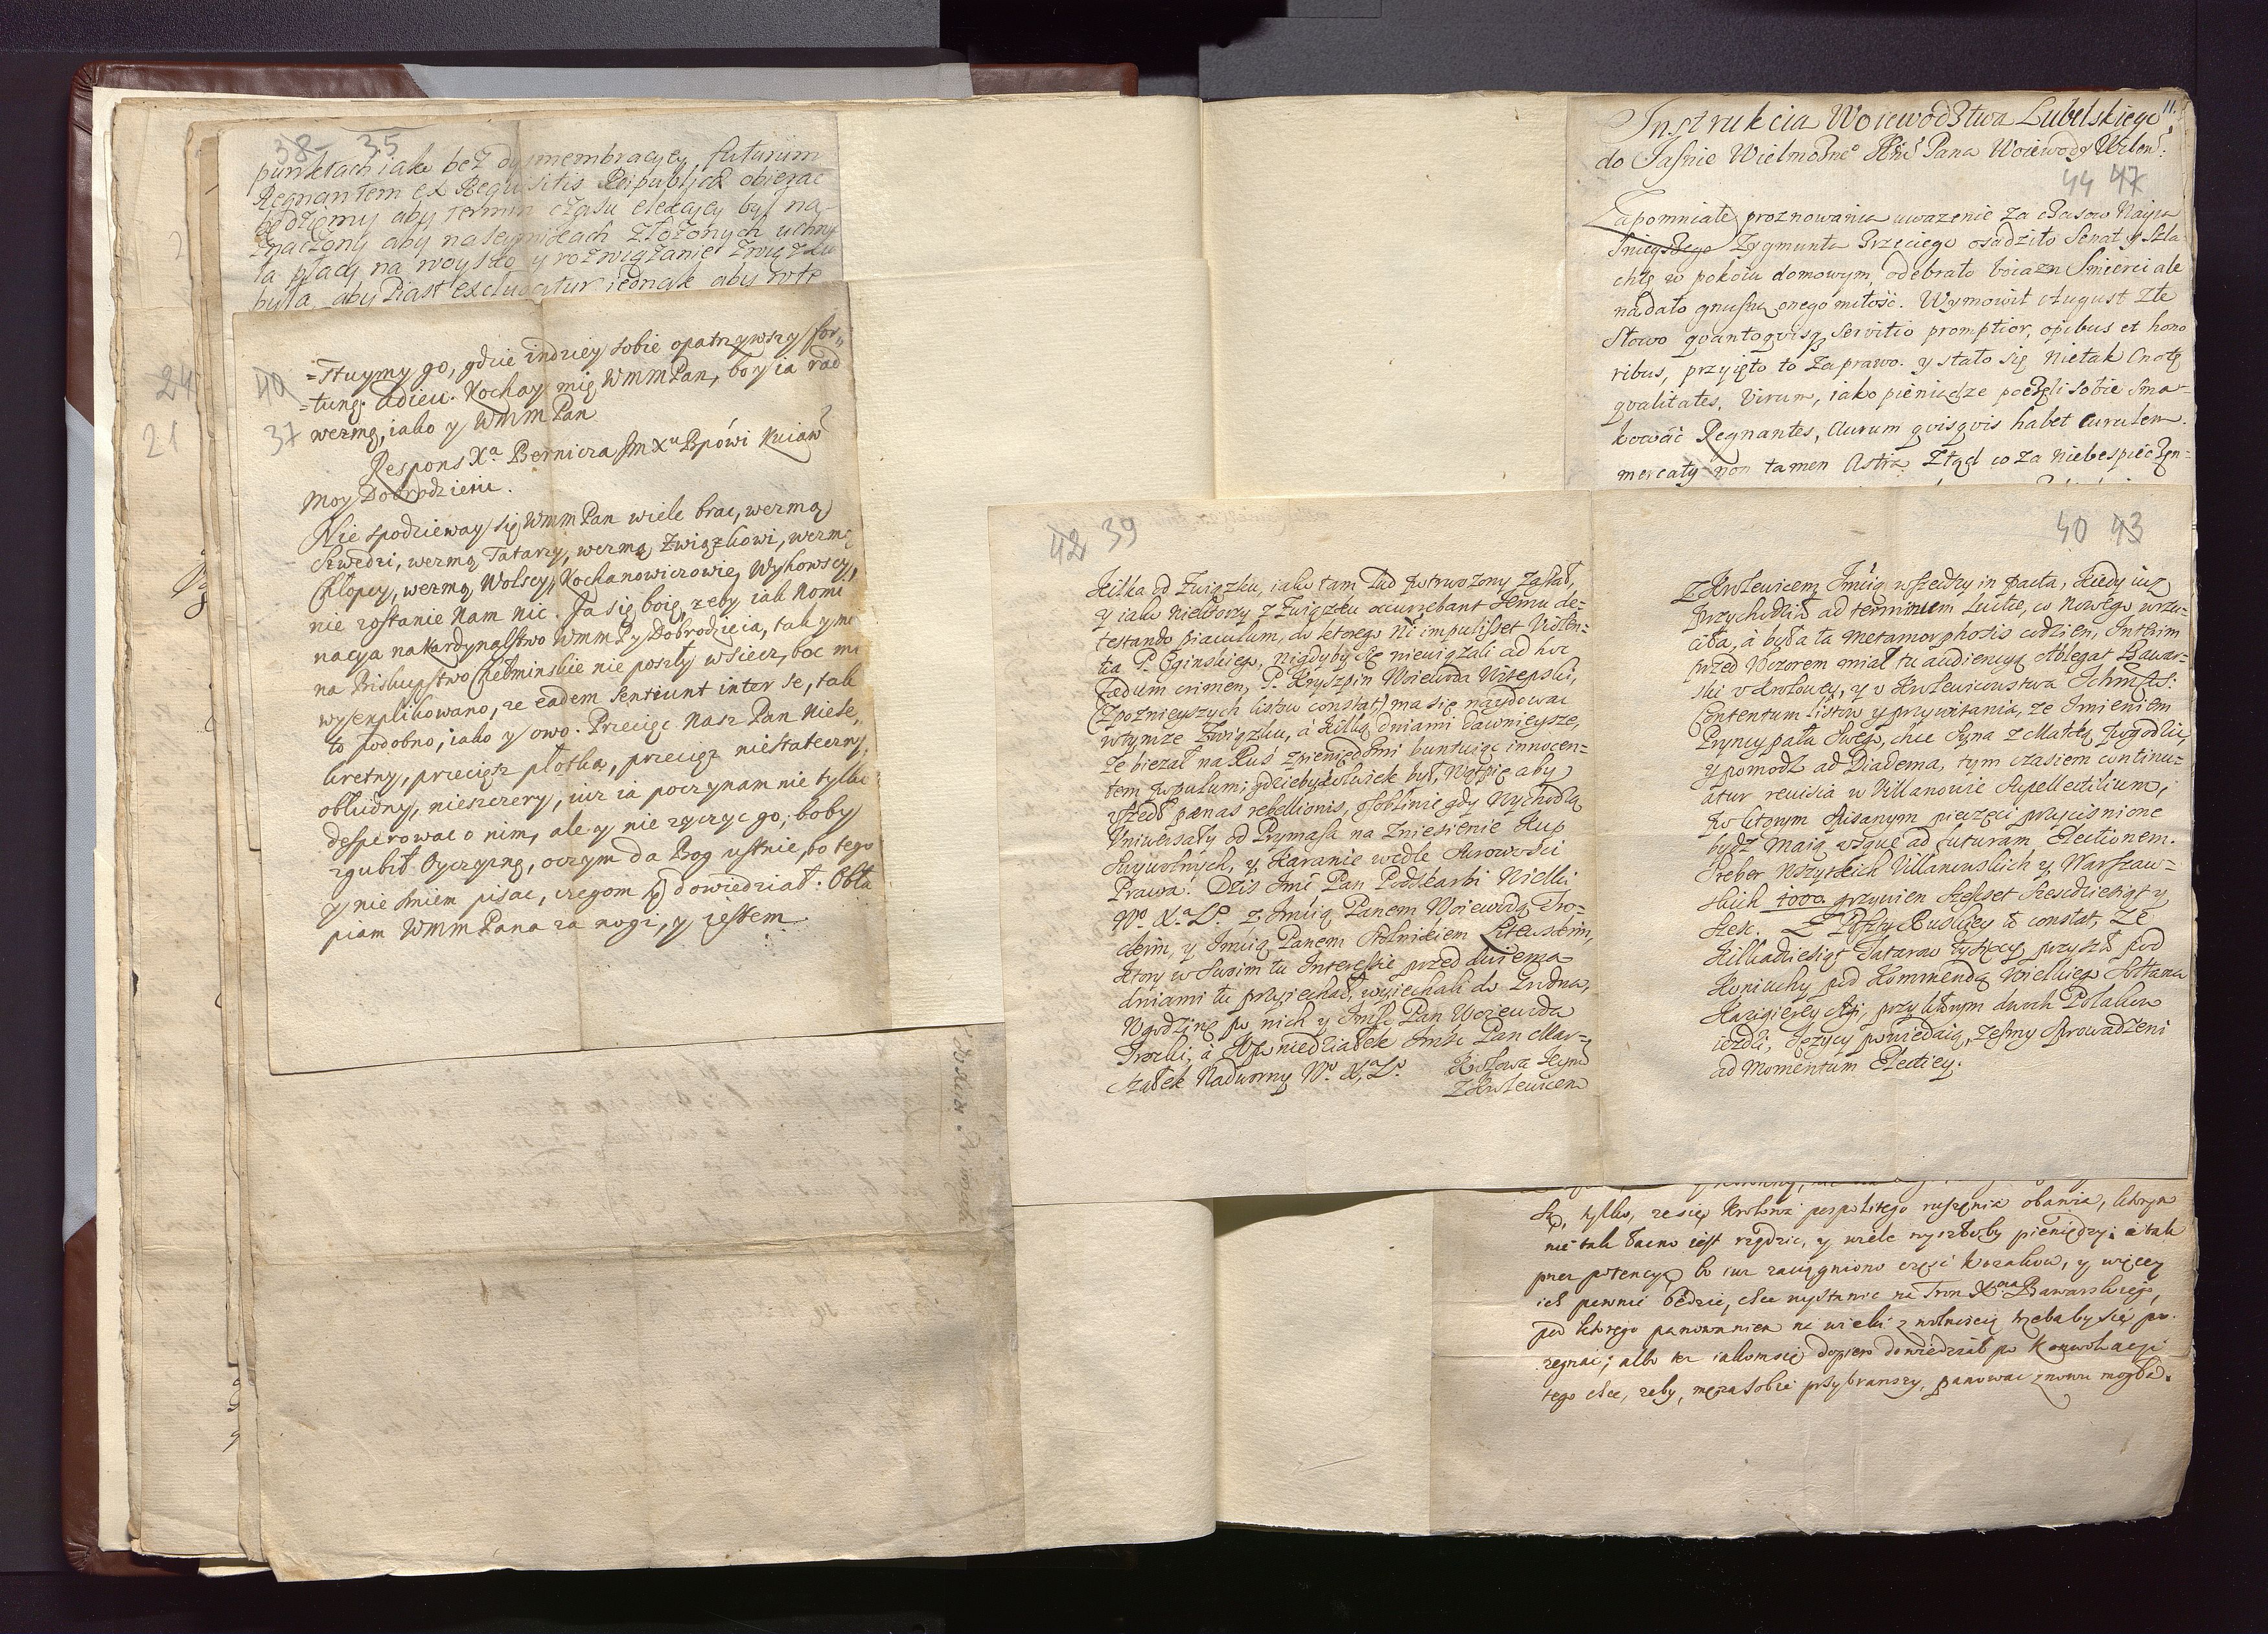 38 35
punktach iako bez dysmembracyey, futurum
Regnantem ex Requisitis Reipublicæ obierac
będziemy aby termin czasu elekcyey był na-
znaczony aby naseymikach złożonych uchwa
ła płacy na woysko y rozwiązanie Związku
była, aby Piast excludatur iednak aby
24
21
40
37
=stuymy go, gdzie indziey sobie opatrzywszy for„
=tunę. Adieu. Kochay mię WMMPan, bo y ia rad
wezmę, iako y WMMPan
Respons Xa Bernicza Jm Xu Bpówi Kuiaw
Moy Dobrodzieiu.
Nie spodzieway się WMMPan wiele brac, wezmą
Szwedzi, wezmą Tatarzy, wezmą Związkowi, wezmą
Chłopcy, wezmą Wolscy, Kochanowiczowie, Wyhowscy,
nie zostanie Nam nic. Ja się boię, zeby iak Nomi
nacya na Kardynalstwo WMMP y Dobrodzieia, tak y mo
na Biskupstwo Chełminskie nie poszły w Siecz, boc mi
wyexplikowano, ze eadem sentiunt inter se, tak
to podobno, iako y owo. Przeciąc Nasz Pan Niese„
kretny, przeciąsz plotka, przeciąsz niestateczny,
obłudny, nieszczery, iuz ia poczynam nie tylko
desperowac o nim, ale y nie zyczyc go; boby
zgubił Oyczyznę, oczym da Bog ustnie, bo tego
y nie smiem pisac, czegom się dowiedział: Obła
piam WMMPana za nogi, y iestem
42 39
Kilka od Związku, iako tam lud potrwożony zastał,
y iako niektorzy z Związku occurrebant Jemu de=
testando piaculum, do ktorego Ni impulisset Violen=
tia P. Oginskiego, nigdyby się niewiązali ad hoc
fædum crimen, P. Kryszpin Woiewoda Witepski,
(Zpoznieyszych listow constat) ma się naydowac
w tymże Związku, à kilką dniami dawnieysze,
że biezał na Ruś zpieniędzmi buntuiąc innocen=
tem populum; gdzieby kolwiek był, Wątpię aby
uszedł pænas rebellionis, osobliwie gdy Wychodzą
Uniwersały od Prymasa na Zniesienie Kup
Swywolnych, y Karanie wedle surowosci
Prawa. Dzis Jmć Pan Podskarbi Wielki
Wo Xa Lo z Jmcią Panem Woiewodą Tro=
ckim, y Jmcią Panem Stolnikiem Litewskim,
ktory w swoim tu Interessie przed dwiema
dniami tu przyiechał, wyiechali do Grodna,
W godzinę po nich y Jmść Pan Woiewoda
Trocki, à W poniedziałek Jmść Pan Mar=
szałek Nadworny Wo Xa Lo Krolowa Jeymć
Z Krolewicem
40 43
Z Krolewicem Jmcią wszedszy in pacta, kiedy iuż
przychodziło ad terminum lucta, co nowego wrzu=
ciła, à była ta metamorphosis codzien, Interim
przed Wczorem miał tu audiencyą Ablegat Bawar=
ski v Krolowey, y v Krolewicowstwa Ichmść:
Contentum listow y przywitania, że Imieniem
Pryncypała swego, chce syna z Matką pogodzić,
y pomodz ad Diadema, tym czasiem continu=
atur revisia w Villanowie supellectilium,
po ktorym spisanym pieczęci przyciśnione
bydz maią usque ad futuram Electionem.
Sreber wszytkich Villanowskich y Warszaw=
skich 4000. grzywien szescset szescdziesiąt y
szesc. Z Poszty Ruskiey to constat, że
Kilkadziesiąt Tatarow tysięcy przyszło pod
Koniuchy pod Kommendą Wielkiego Sołtana
Kazigierey Agi, przy ktorym dwoch Polakow
iezdzi, Języcy powiedaią, zesmy sprowadzeni
ad Momentum Electiey.
11.
Instrukcia Woiewodztwa Lubelskiego
do Jaśnie Wielmożnego Jmć Pana Woiewody Wilen:
44 47
Zapomniałe proznowania uwazenie za czasow Naiia
śnieyszego Zygmunta Trzeciego osadziło Senat y Szla
chtę w pokoiu domowym, odebrało boiazn Smierci ale
nadało gnusną onego miłość. Wymowił August Złe
Słowo quanto quisq Servitio promptior, opibus et hono
ribus, przyięto to za prawo. y stało się nietak Cnotę
qualitates, Virum, iako pieniądze poczęli sobie sma=
kować Regnantes, Aurum quisquis habet Curulem
mercaty non tamen Astra. Ztąd co za niebespieczęn=
są, tylko, ze się Krolowa pospolitego ruszenia obawia, ktorym
nie tak łacno iest rządzic, y wiele wyszłoby pieniędzy; a tak
przez potencyą bo iuz zaciągniono częsc Kozakow, y więcey
ich pewnie będzie, chce wystawic na Tron Xcia Bawarskiego,
pod ktorego panowaniem na wieki z wolnoscią trzebaby się po-
zegnac; albo tez iakom się dopiero dowiedział po Konwokacyi
tego chce, zeby, męza sobie przybrawszy, panowac znowu mogła.